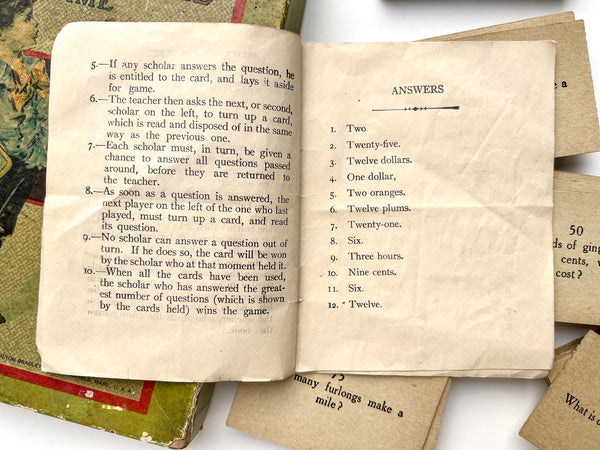 5.—If any scholar answers the question, he
is entitled to the card, and lays it aside
for game.
6.—The teacher then asks the next, or second,
scholar on the left, to turn up a card,
which is read and disposed of in the same
way as the previous one.
7.—Each scholar must, in turn, be given a
chance to answer all questions passed
around, before they are returned to
the teacher.
8.—As soon as a question is answered, the
next player on the left of the one who last
played, must turn up a card, and read
its question.
9.—No scholar can answer a question out of
turn. If he does so, the card will be won
by the scholar who at that moment held it.
10.—When all the cards have been used,
the scholar who has answered the great-
est number of questions (which is shown
by the cards held) wins the game.
ANSWERS
1. Two.
2. Twenty-five.
3. Twelve dollars.
4. One dollar,
5. Two oranges.
6. Twelve plums.
7. Twenty-one.
8. Six.
9. Three hours.
10. Nine cents.
11. Six.
12. Twelve.
50
of
cents,
cost?
many furlongs make a
mile?
What is
a
BRADLEY